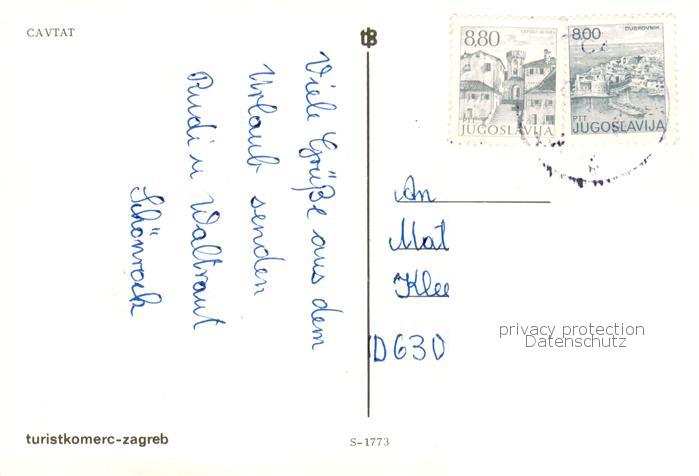 CAVTAT
tB
Viele Grüße aus dem
Urlaub senden
Rudi u Waltraut
Schönrock
8,80
HERCEG NOVI
PTT
JUGOSLAVIJA
8.00
DUBROVNIK
PTT
JUGOSLAVIJA
An
Mat
Klee
D630
privacy protection
Datenschutz
turistkomerc-zagreb
S-1773